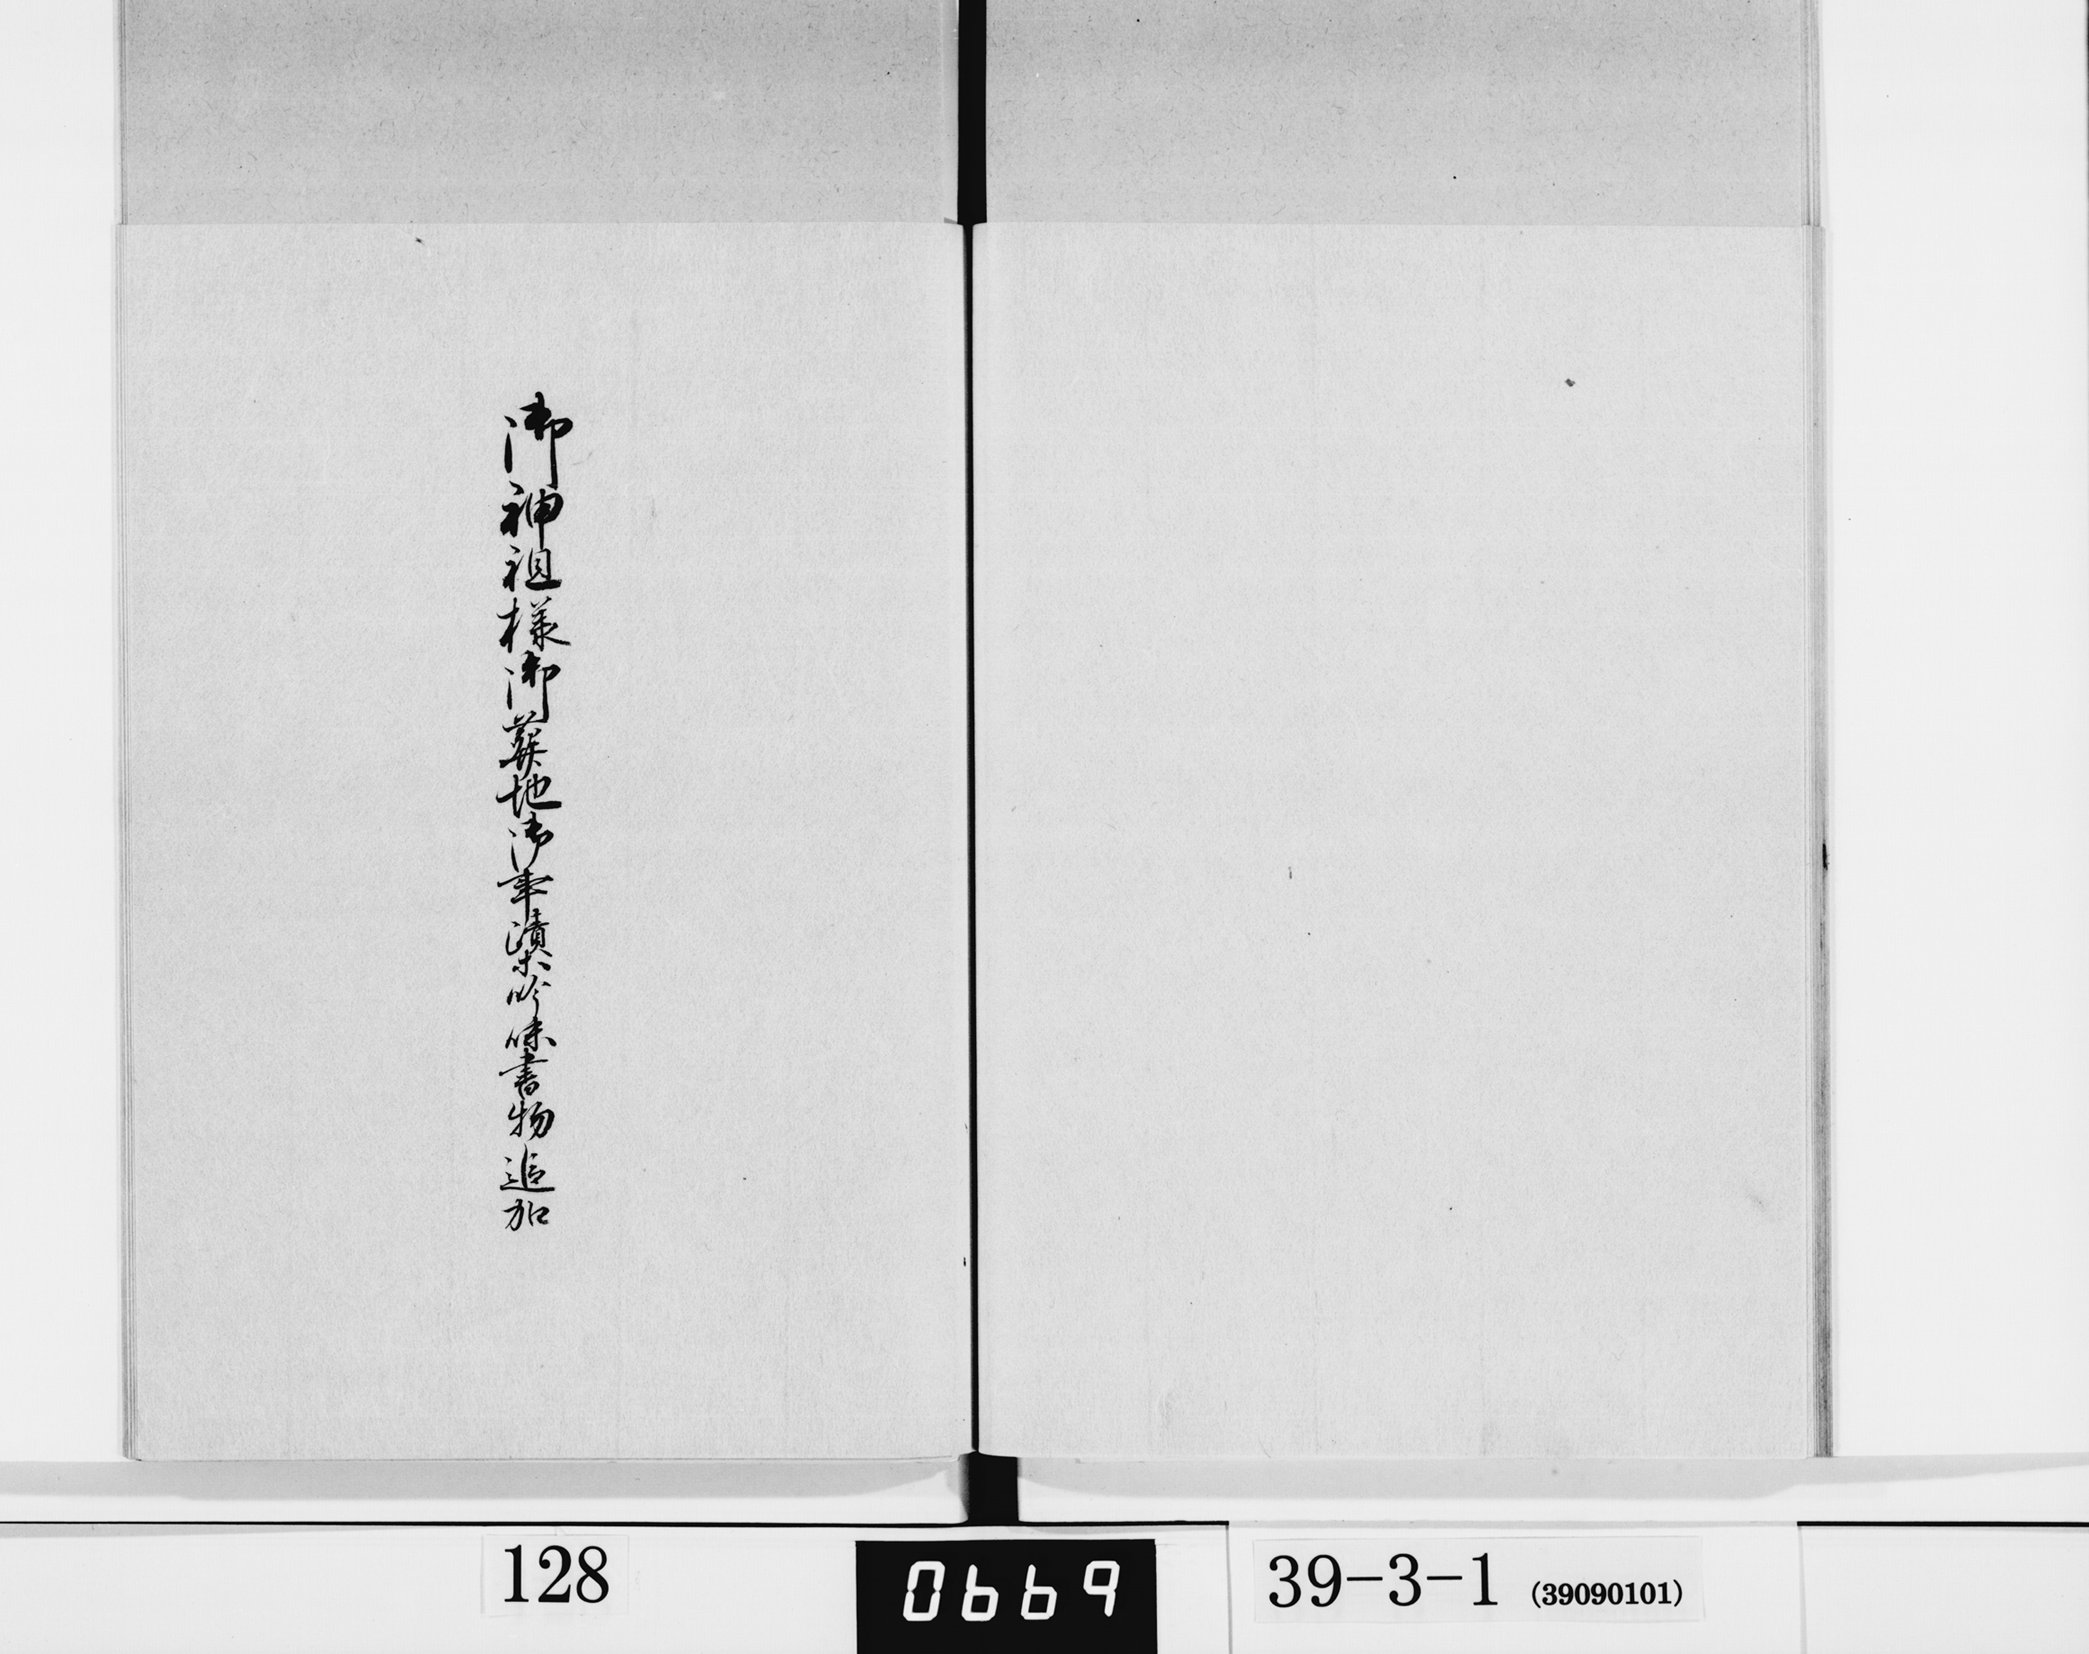 御神祖様御葬地御事蹟等吟味書物追加
128
0669
39-3-1 (39090101)